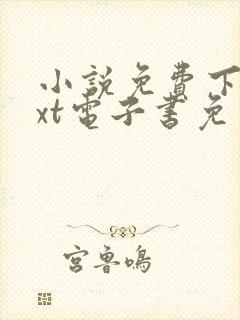 小説免費下
xt電子書免
宮魯鳴